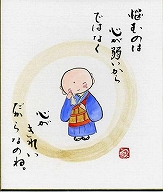 悩むのは
心が弱いから
ではなく
心が
きれい
だからなのね。